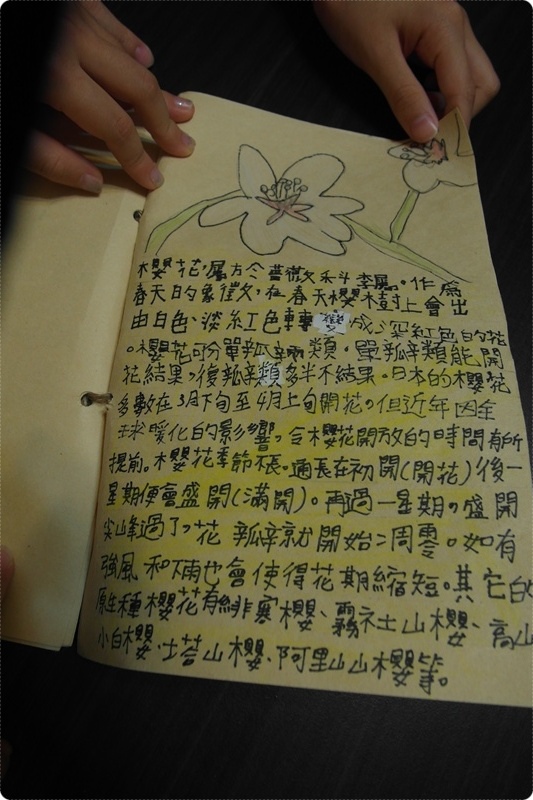 櫻花，屬於薔薇科李屬。作為
春天的象徵，在春天櫻樹上會出
由白色、淡紅色轉變成深紅色的花
。櫻花可分單瓣類。單瓣類能開
花結果，復瓣類多半不結果。日本的櫻花
多數在3月下旬至4月上旬開花。但近年因全
球暖化的影響，令櫻花開放的時間有所
提前。櫻花季節不長。通長在初開(開花)後一
星期便會盛開(滿開)。再過一星期，盛開
尖峰過了，花瓣就開始凋零。如有
強風和雨也會使得花期縮短。其它的
原生種櫻花有緋寒櫻、霧社山櫻、高山
小白櫻、塔山櫻、阿里山山櫻等。